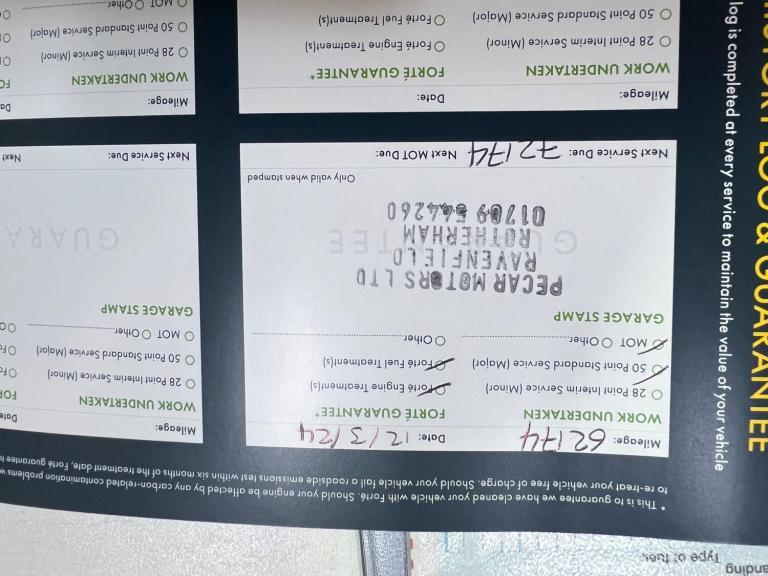 anding
Type of fuel
* This is to guarantee we have cleaned your vehicle with Forté. Should your engine be affected by any carbon-related contamination problems
to re-treat your vehicle free of charge. Should your vehicle fail a roadside emissions test within six months of the treatment date, Forté guarantee
LOG & GUARANTEE
log is completed at every service to maintain the value of your vehicle
Mileage: 62174 Date: 12/3/24
WORK UNDERTAKEN FORTÉ GUARANTEE*
28 Point Interim Service (Minor) Forté Engine Treatment(s)
50 Point Standard Service (Major) Forté Fuel Treatment(s)
MOT Other Other
GARAGE STAMP
PECAR MOTORS LTD
RAVENFIELD
ROTHERHAM
01709 544260
Only valid when stamped
Next Service Due: 72174 Next MOT Due:
Mileage: Date:
WORK UNDERTAKEN FORTÉ GUARANTEE*
28 Point Interim Service (Minor) Forté Engine Treatment(s)
50 Point Standard Service (Major) Forté Fuel Treatment(s)
Mileage: Date
WORK UNDERTAKEN FOR
28 Point Interim Service (Minor)
50 Point Standard Service (Major)
MOT Other
GARAGE STAMP
GUARA
Next Service Due: Next
Mileage: Da
WORK UNDERTAKEN FO
28 Point Interim Service (Minor)
50 Point Standard Service (Major)
MOT Other